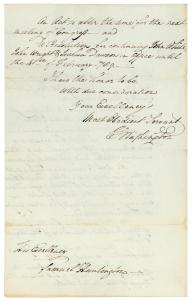 An Act to alter the time for the next
meeting of Congress and
The Resolution for continuing John White
John Wright & Joshua Dawson in Office until
the 4th of February 1789.
I have the honor to be
With due consideration
Your Excellency's
Most Obedient Servant
G. Washington
His Excellency
Samuel Huntington